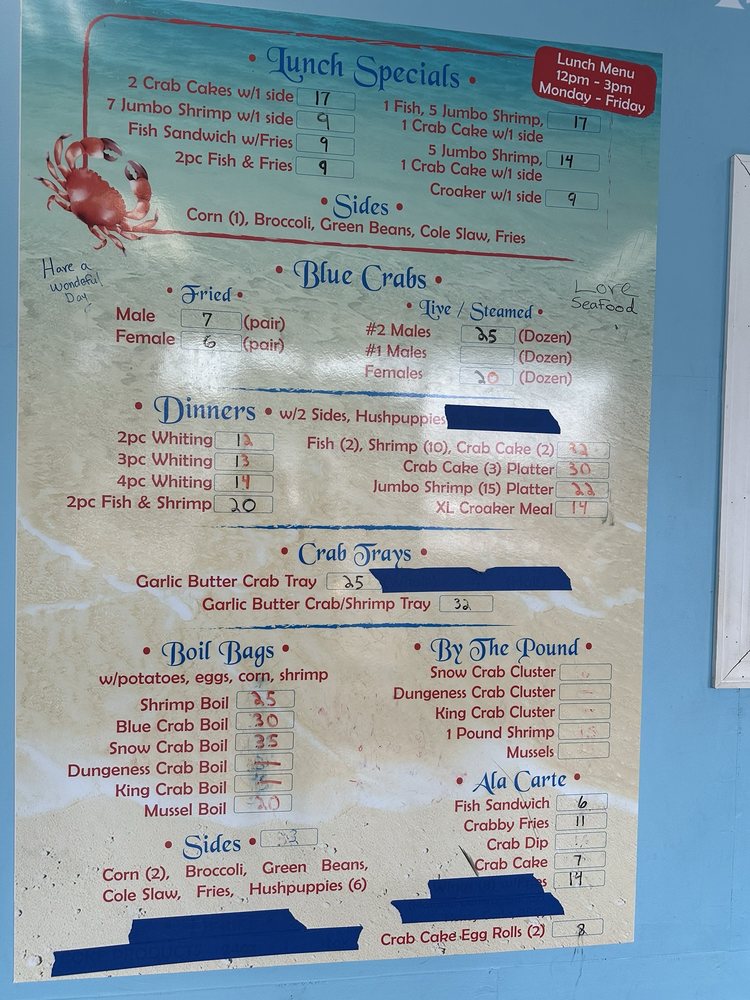 • Lunch Specials •
Lunch Menu
12pm - 3pm
Monday - Friday
2 Crab Cakes w/1 side 17
7 Jumbo Shrimp w/1 side 9
Fish Sandwich w/Fries 9
2pc Fish & Fries 9
1 Fish, 5 Jumbo Shrimp, 17
1 Crab Cake w/1 side
5 Jumbo Shrimp, 14
1 Crab Cake w/1 side
Croaker w/1 side 9
• Sides •
Corn (1), Broccoli, Green Beans, Cole Slaw, Fries
Have a
Wondeful
Day
Love
SeaFood
• Blue Crabs •
• Fried •
Male 7 (pair)
Female 6 (pair)
• Live / Steamed •
#2 Males 25 (Dozen)
#1 Males (Dozen)
Females 20 (Dozen)
• Dinners • w/2 Sides, Hushpuppies
2pc Whiting 12
3pc Whiting 13
4pc Whiting 14
2pc Fish & Shrimp 20
Fish (2), Shrimp (10), Crab Cake (2) 32
Crab Cake (3) Platter 30
Jumbo Shrimp (15) Platter 22
XL Croaker Meal 14
• Crab Trays •
Garlic Butter Crab Tray 25
Garlic Butter Crab/Shrimp Tray 32
• Boil Bags •
w/potatoes, eggs, corn, shrimp
Shrimp Boil 25
Blue Crab Boil 30
Snow Crab Boil 35
Dungeness Crab Boil
King Crab Boil
Mussel Boil 20
• Sides •
Corn (2), Broccoli, Green Beans,
Cole Slaw, Fries, Hushpuppies (6)
• By The Pound •
Snow Crab Cluster
Dungeness Crab Cluster
King Crab Cluster
1 Pound Shrimp
Mussels
• Ala Carte •
Fish Sandwich 6
Crabby Fries 11
Crab Dip
Crab Cake 7
14
Crab Cake Egg Rolls (2) 8